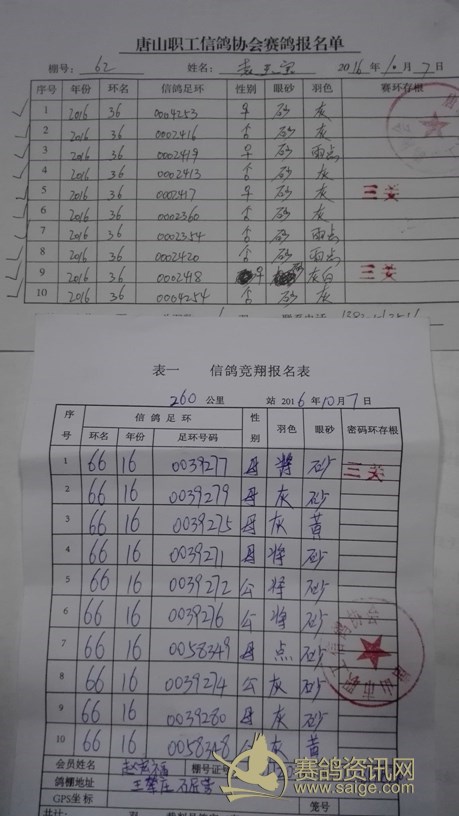 唐山职工信鸽协会赛鸽报名单
棚号: 62 姓名: 2016 年 10 月 7 日
序号 年份 环名 信鸽足环 性别 眼砂 羽色 赛环存根
1 2016 36 0004253 早 砂 灰
2 2016 36 0002416 砂 灰
3 2016 36 0002419 早 砂 雨点
4 2016 36 0002413 砂 灰
5 2016 36 0002417 早 砂 灰 三关
6 2016 36 0002360 砂 灰
7 2016 36 0002354 砂 雨点
8 2016 36 0002420 砂 雨点
9 2016 36 0002418 灰白 三关
10 2016 36 0004254 砂 灰
表一 信鸽竞翔报名表
260 公里 站 2016 年 10 月 7 日
序号 信鸽足环 性别 羽色 眼砂 密码环存根
环名 年份 足环号码
1 66 16 0039277 母 酱 砂 三关
2 66 16 0039279 母 灰 砂
3 66 16 0039275 母 灰 黄
4 66 16 0039271 母 将 砂
5 66 16 0039272 公 将 砂
6 66 16 0039276 公 将 砂
7 66 16 0058349 母 点 砂
8 66 16 0039274 公 灰 砂
9 66 16 0039280 母 灰 砂
10 66 16 0058348 灰 黄
会员姓名 棚号证
鸽棚地址
GPS坐标 笼号
赛鸽资讯网
www.saige.com